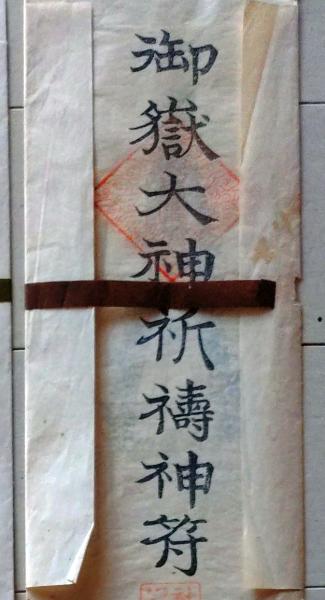 御嶽大神祈禱神符